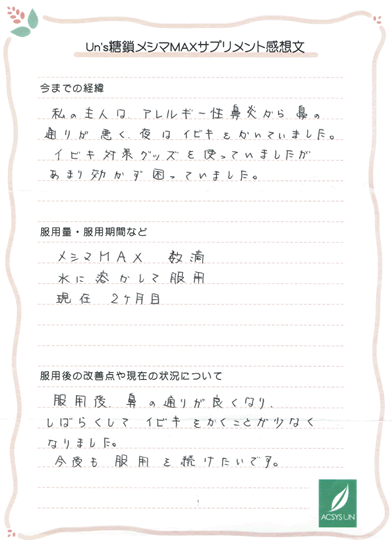 Un's糖鎖メシマMAXサプリメント感想文
今までの経緯
私の主人は、アレルギー性鼻炎から鼻の
通りが悪く、夜はイビキをかいていました。
イビキ対策グッズを使っていましたが
あまり効かず困っていました。
服用量・服用期間など
メシマMAX 数滴
水に溶かして服用
現在 2ヶ月目
服用後の改善点や現在の状況について
服用後、鼻の通りが良くなり、
しばらくして イビキをかくことが少なく
なりました。
今後も 服用を続けたいです。
1
ACSYS UN